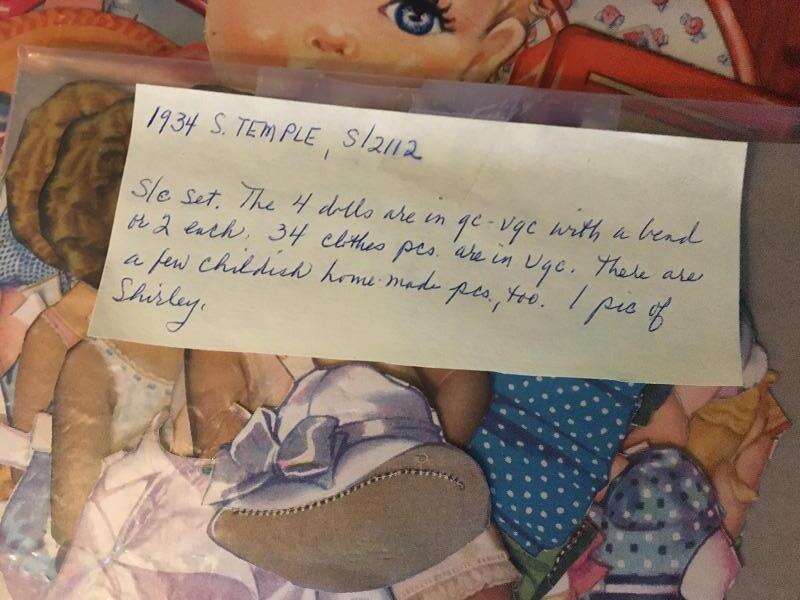 1934 S. TEMPLE, S/2112
S/c set. The 4 dolls are in gc-vgc with a bend
or 2 each. 34 clothes pcs. are in Vgc. There are
a few childish home-made pcs., too. 1 pic of
Shirley.